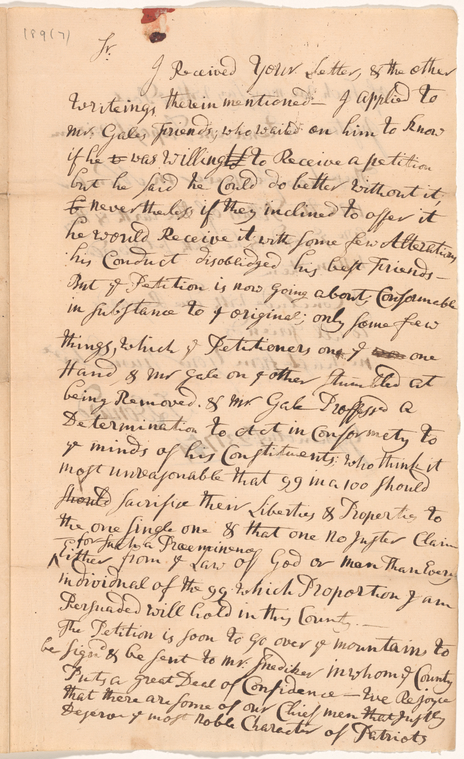 189(7)
Sr.
I Received Your Letter, & the other
Writeings therein mentioned— I applied to
Mr. Gales Friends; who waited on him to know
if he was Willing to Receive a petition
but he said he Could do better without it,
nevertheless if they inclined to offer it
he would Receive it with Some few Alterations
his Conduct disobledged his best Friends—
But ye Petition is now going about, Conformable
in substance to ye original; only some few
things, which ye Petitioners on ye one
Hand & Mr Gale on ye other stumbled at
being Removed. & Mr Gale Professed a
Determination to Act in Conformety to
ye minds of his Constituents; who think it
most unreasonable that 99 in a 100 Should
Should Sacrifice their Liberties & Properties to
the one single one & that one no Juster Claim
for Such a Preeminence
Either from ye Law of God or man Than Every
individual of the 99 which Proportion I am
Persuaded will hold in this County.—
The Petition is soon to Go over ye mountains to
be Sign'd & be sent to Mr. Snediker in whom ye County
Puts a great Deal of Confidence— We Rejoyce
that there are some of our Chief men that Justly
Deserve ye most noble Character of Patriots